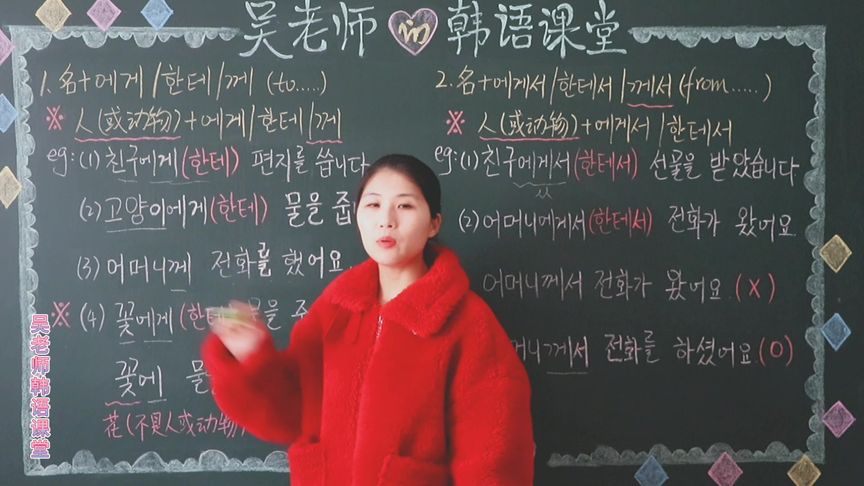 吴老师的韩语课堂
1. 名+에게/한테/께 (to.....)
※ 人(或动物)+에게/한테/께
eg: (1) 친구에게(한테) 편지를 씁니다
(2) 고양이에게(한테) 물을 줍
(3) 어머니께 전화를 했어요.
※ (4) 꽃에게(한테 물을 주
꽃에 물
花(不是人或动物)
2. 名+에게서/한테서/께서(from.....)
※ 人(或动物)+에게서/한테서
eg: (1) 친구에게서(한테서) 선물을 받았습니다
(2) 어머니에게서(한테서) 전화가 왔어요
어머니께서 전화가 왔어요. (X)
머니께서 전화를 하셨어요(O)
吴老师韩语课堂